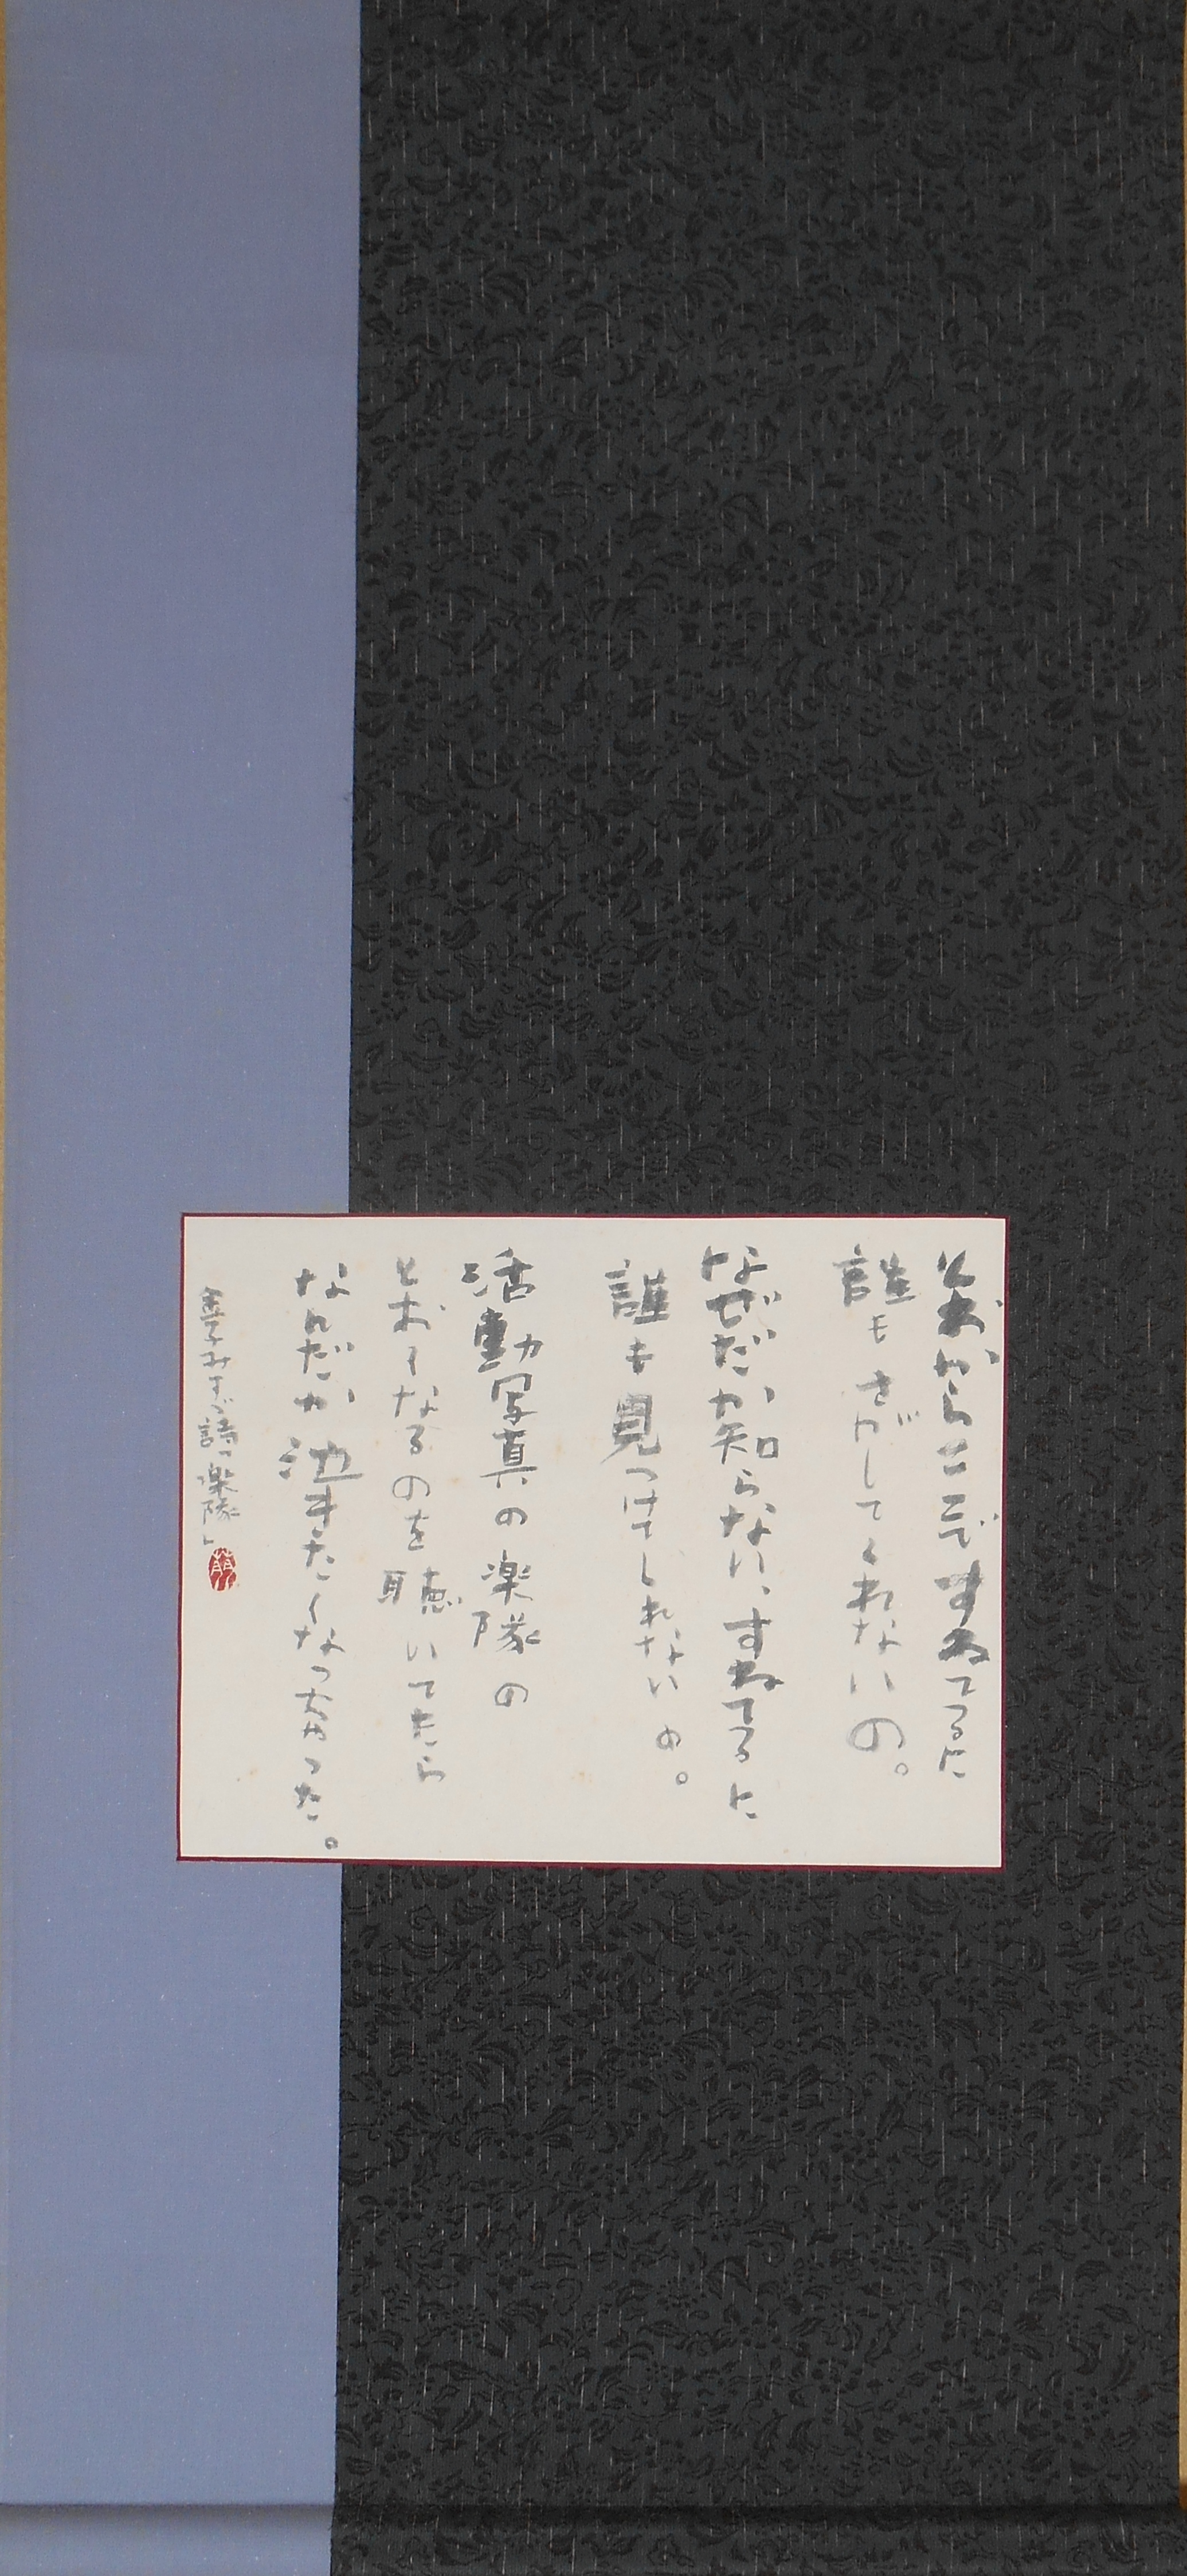 とおからここですねてるに
誰もさがしてくれないの。
なぜだか知らない、すねてるに
誰も見つけてくれないの。
活動写真の楽隊の
とおくなるのを聴いてたら
なんだか泣きたくなっちゃった。
金子みすゞ詩「楽隊」